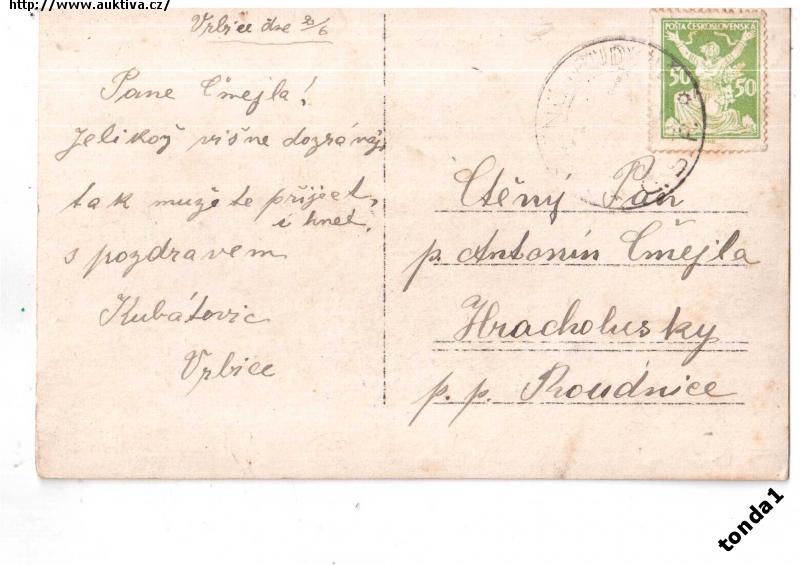 http://www.auktiva.cz/
Vrbice dne 20/6
Pane Čmejla!
Jelikož višne dozrávají
tak mužete přijeet,
i hnet.
s pozdravem
Kubátovic
Vrbice
POŠTA ČESKOSLOVENSKÁ
50 50
Ctěný Pán
p. Antonín Čmejla
Hracholusky
p. p. Roudnice
tonda1